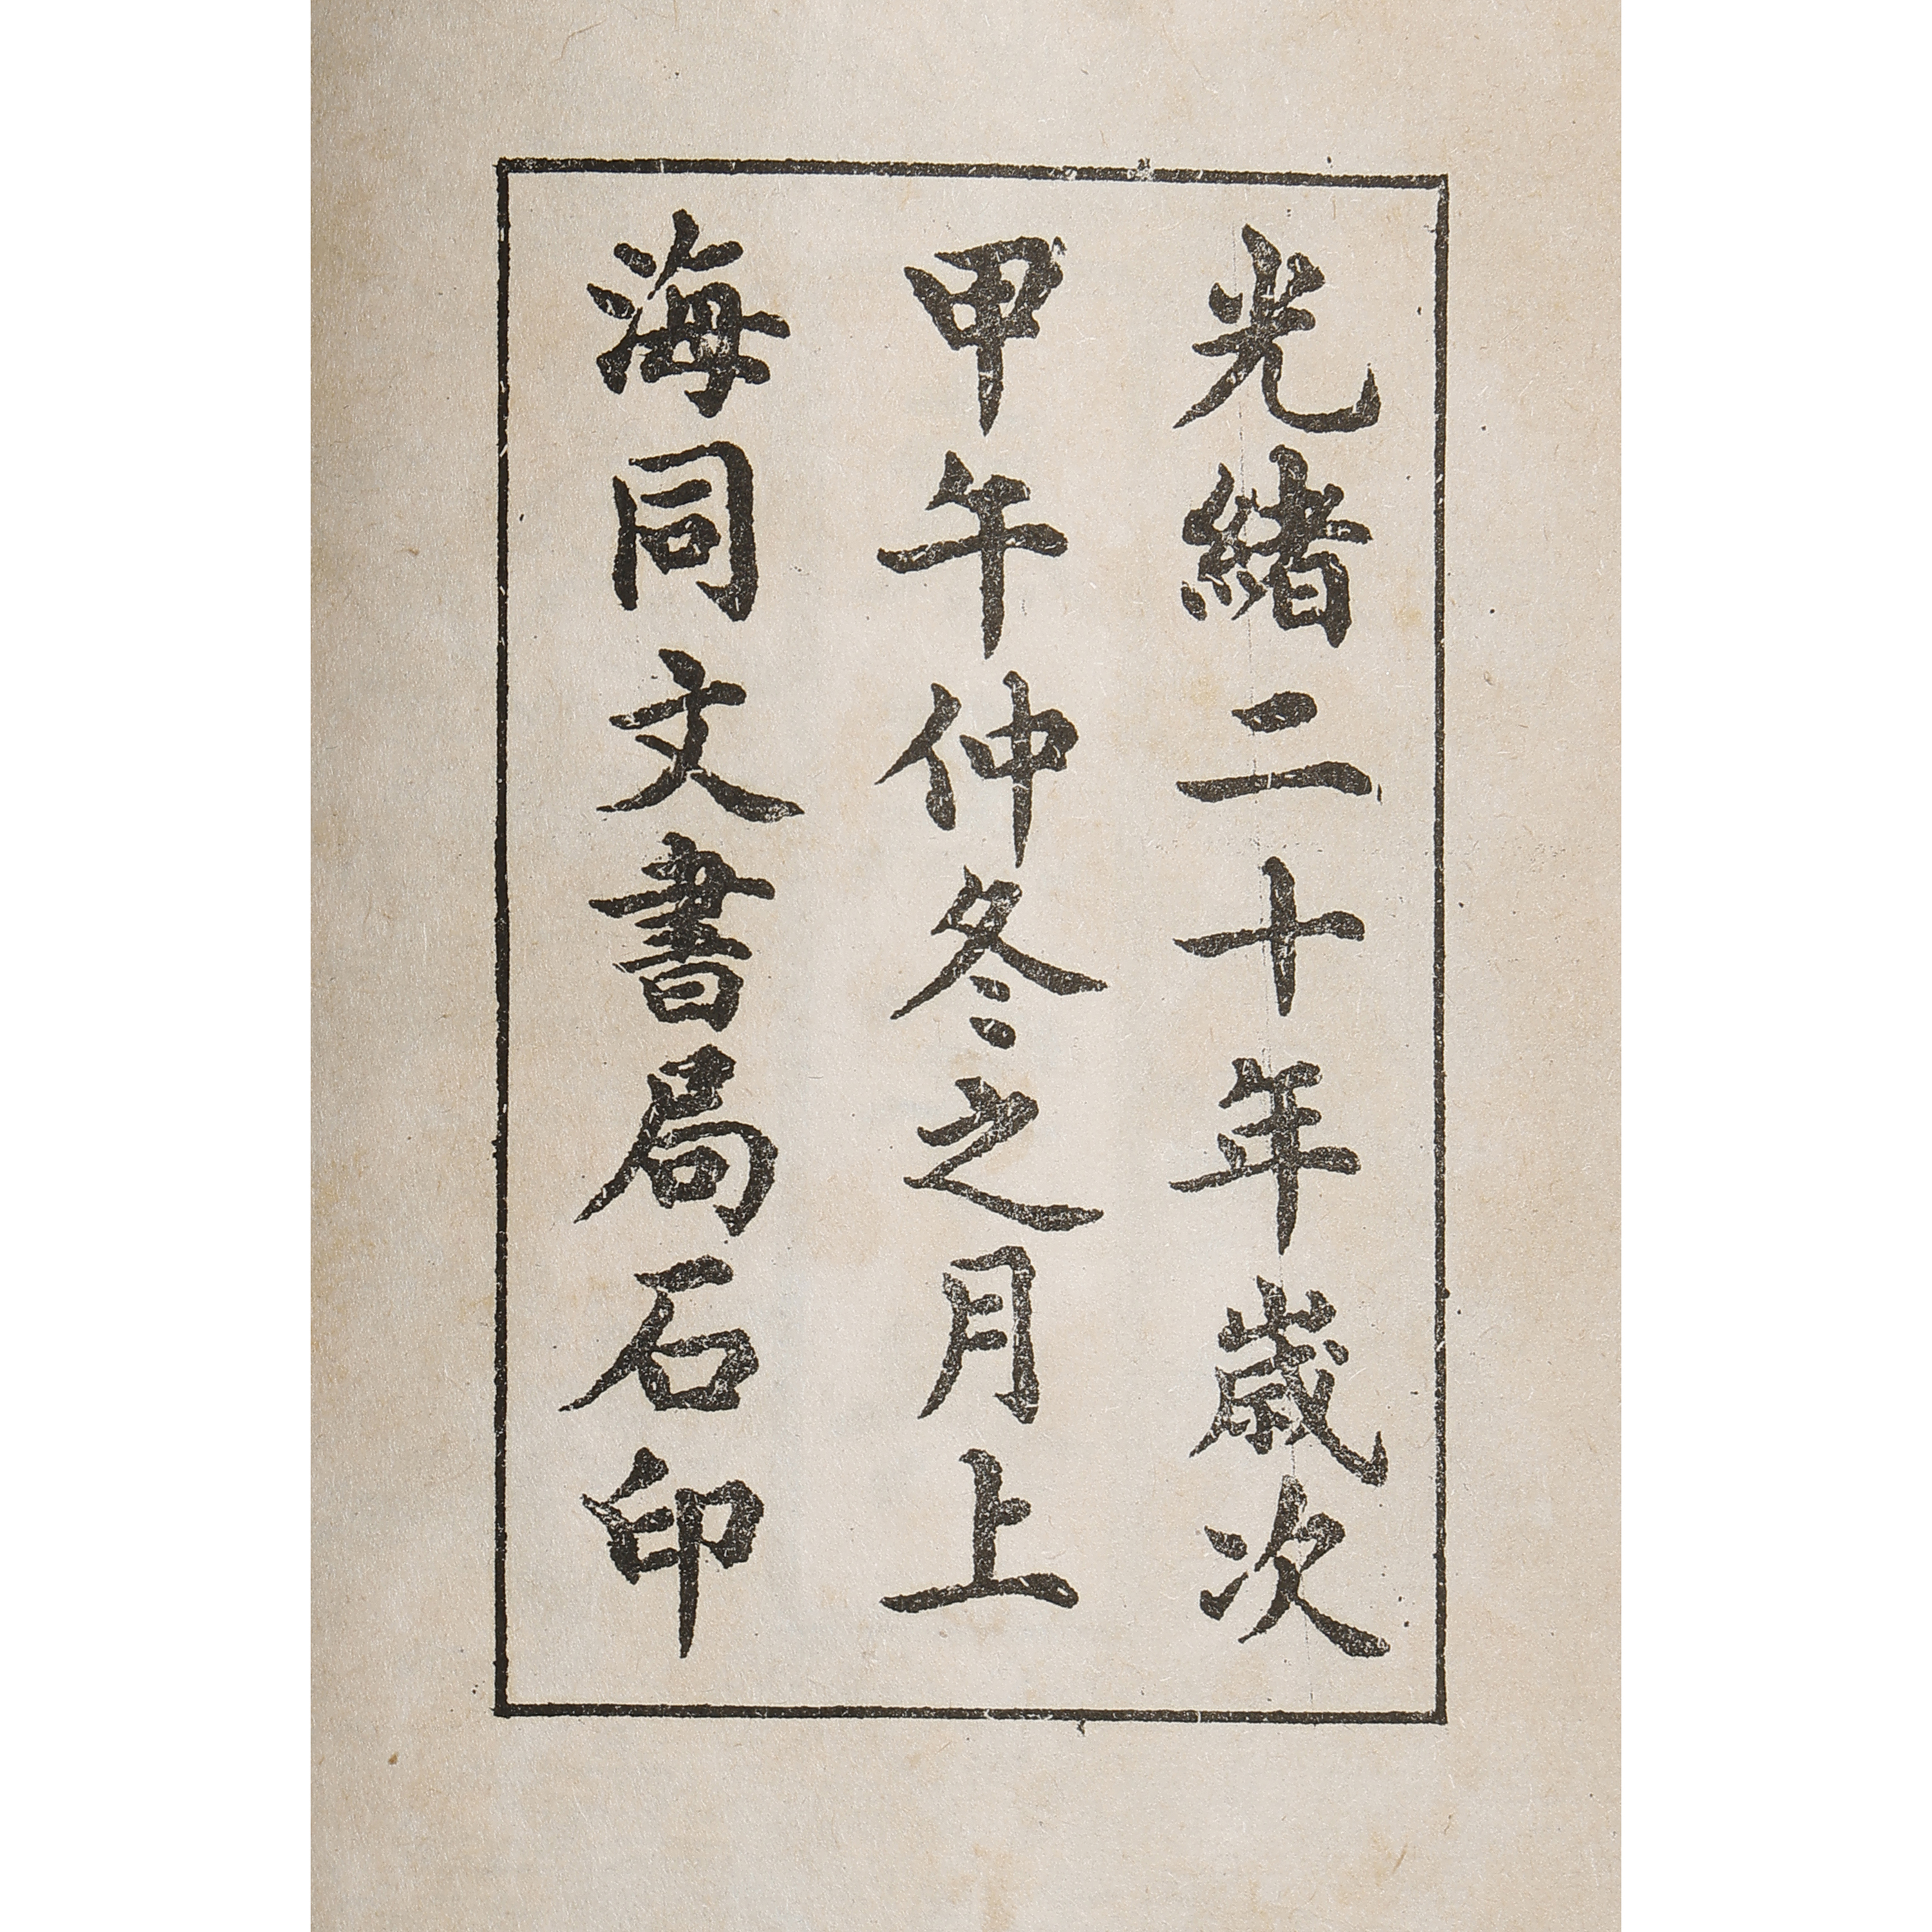 光緒二十年歲次
甲午仲冬之月上
海同文書局石印